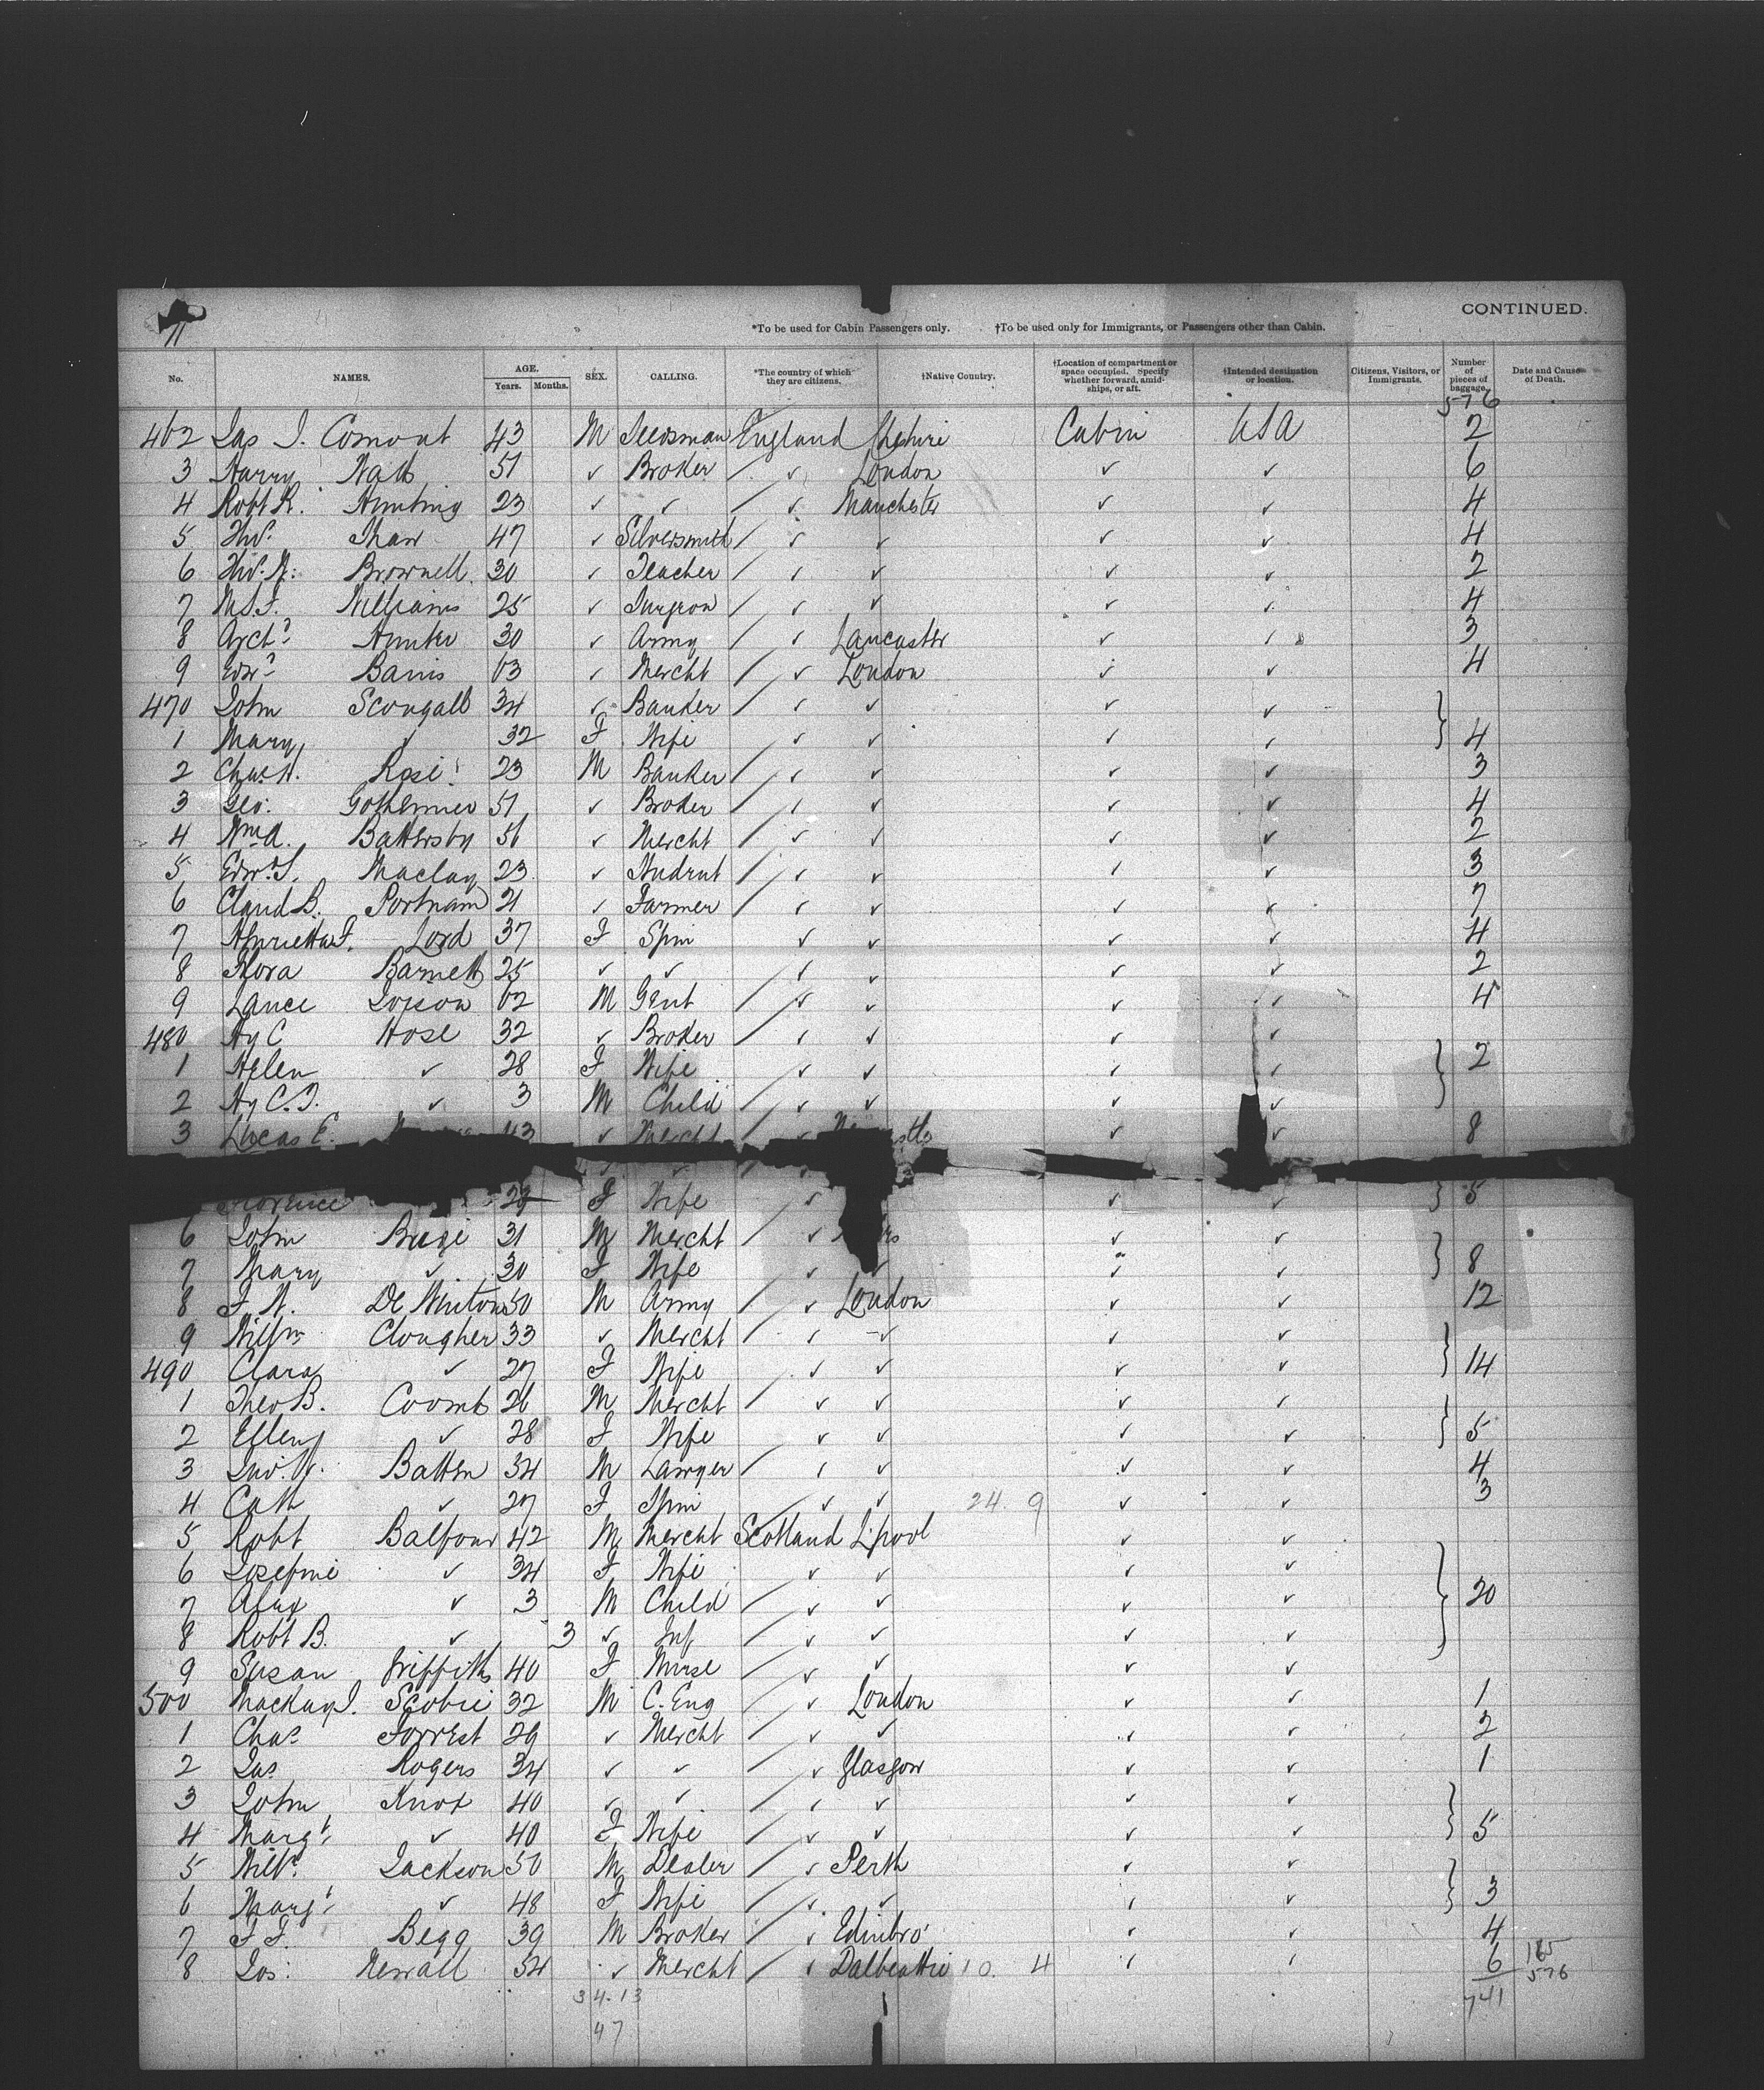 11
CONTINUED.
*To be used for Cabin Passengers only. †To be used only for Immigrants, or Passengers other than Cabin.
No. NAMES. AGE. Years. Months. SEX. CALLING. *The country of which they are citizens. †Native Country. †Location of compartment or space occupied. Specify whether forward, amidships, or aft. †Intended destination or location. Citizens, Visitors, or Immigrants. Number of pieces of baggage. Date and Cause of Death.
576
462 Jas J. Comont 43 M Seedsman England Cheshire Cabin USA 2
3 Harry 51 ✓ Broker / ✓ London ✓ ✓ 6
4 Robt R. Hunting 23 ✓ ✓ / ✓ Manchester ✓ ✓ 4
5 Thos. Shaw 47 ✓ Silversmith / ✓ ✓ ✓ ✓ 4
6 Brownell 30 ✓ Teacher / ✓ ✓ ✓ ✓ 2
7 Williams 25 ✓ Surgeon / ✓ ✓ ✓ ✓ 4
8 Archd Hunter 30 ✓ Army / ✓ Lancaster ✓ ✓ 3
9 Edwd 63 ✓ Mercht / ✓ London ✓ ✓ 4
470 John Scougall 34 ✓ Banker / ✓ ✓ ✓ ✓
1 Mary ✓ 32 F Wife ✓ ✓ ✓ ✓ 4
2 Chas H. Rose 23 M Banker / ✓ ✓ ✓ ✓ 3
3 Geo. 51 ✓ Broker / ✓ ✓ ✓ ✓ 4
4 Wm A. Battersby 56 ✓ Mercht / ✓ ✓ ✓ ✓ 2
5 Edwd S. Maclay 23 ✓ Student / ✓ ✓ ✓ ✓ 3
6 Claud B. Portman 21 ✓ Farmer / ✓ ✓ ✓ ✓ 7
7 Henrietta F. Lord 37 F Spin ✓ ✓ ✓ ✓ 4
8 Flora Barnett 25 ✓ ✓ / ✓ ✓ ✓ ✓ 2
9 Lance 62 M Gent / ✓ ✓ ✓ ✓ 4
480 Hy C Hose 32 ✓ Broker / ✓ ✓ ✓ ✓
1 Helen ✓ 28 F Wife ✓ ✓ ✓ ✓ 2
2 Hy C. J. ✓ 3 M Child / ✓ ✓ ✓ ✓
3 Lucas E. 43 ✓ Mercht / ✓ ✓ ✓ 8
Florence 29 F Wife ✓ ✓ ✓ 5
6 John 31 M Mercht / ✓ ✓ ✓
7 Mary ✓ 30 F Wife ✓ ✓ ✓ ✓ 8
8 F. W. De Winton 50 M Army / ✓ London ✓ ✓ 12
9 Willm Clougher 33 ✓ Mercht / ✓ ✓ ✓ ✓
490 Clara ✓ 27 F Wife ✓ ✓ ✓ ✓ 14
1 Theo B. Coomb 26 M Mercht / ✓ ✓ ✓ ✓
2 Ellen ✓ 28 F Wife ✓ ✓ ✓ ✓ 5
3 Batten 34 M Lawyer / ✓ ✓ ✓ ✓ 4
4 Cath ✓ 27 F Spin / ✓ ✓ 24. 9 ✓ ✓ 3
5 Robt Balfour 42 M Mercht Scotland L'pool ✓ ✓
6 Josefine ✓ 34 F Wife ✓ ✓ ✓ ✓
7 Alex ✓ 3 M Child / ✓ ✓ ✓ ✓ 20
8 Robt B. ✓ 3 ✓ Inf / ✓ ✓ ✓ ✓
9 Susan Griffith 40 F Nurse / ✓ ✓ ✓ ✓
500 Mackay J. Scobie 32 M C. Eng / ✓ London ✓ ✓ 1
1 Chas Forrest 29 ✓ Mercht / ✓ ✓ ✓ ✓ 2
2 Jas Rogers 34 ✓ ✓ / ✓ Glasgow ✓ ✓ 1
3 John Knox 40 ✓ ✓ / ✓ ✓ ✓ ✓
4 Margt ✓ 40 F Wife / ✓ ✓ ✓ ✓ 5
5 Jackson 50 M Dealer / ✓ Perth ✓ ✓
6 Margt ✓ 48 F Wife / ✓ ✓ ✓ ✓ 3
7 Begg 39 M Broker / ✓ Edinbro' ✓ ✓ 4
8 Jos: Newall 54 ✓ Mercht / ✓ Dalbeattie 10. 4 ✓ ✓ 6 165
34.13 576
741
47